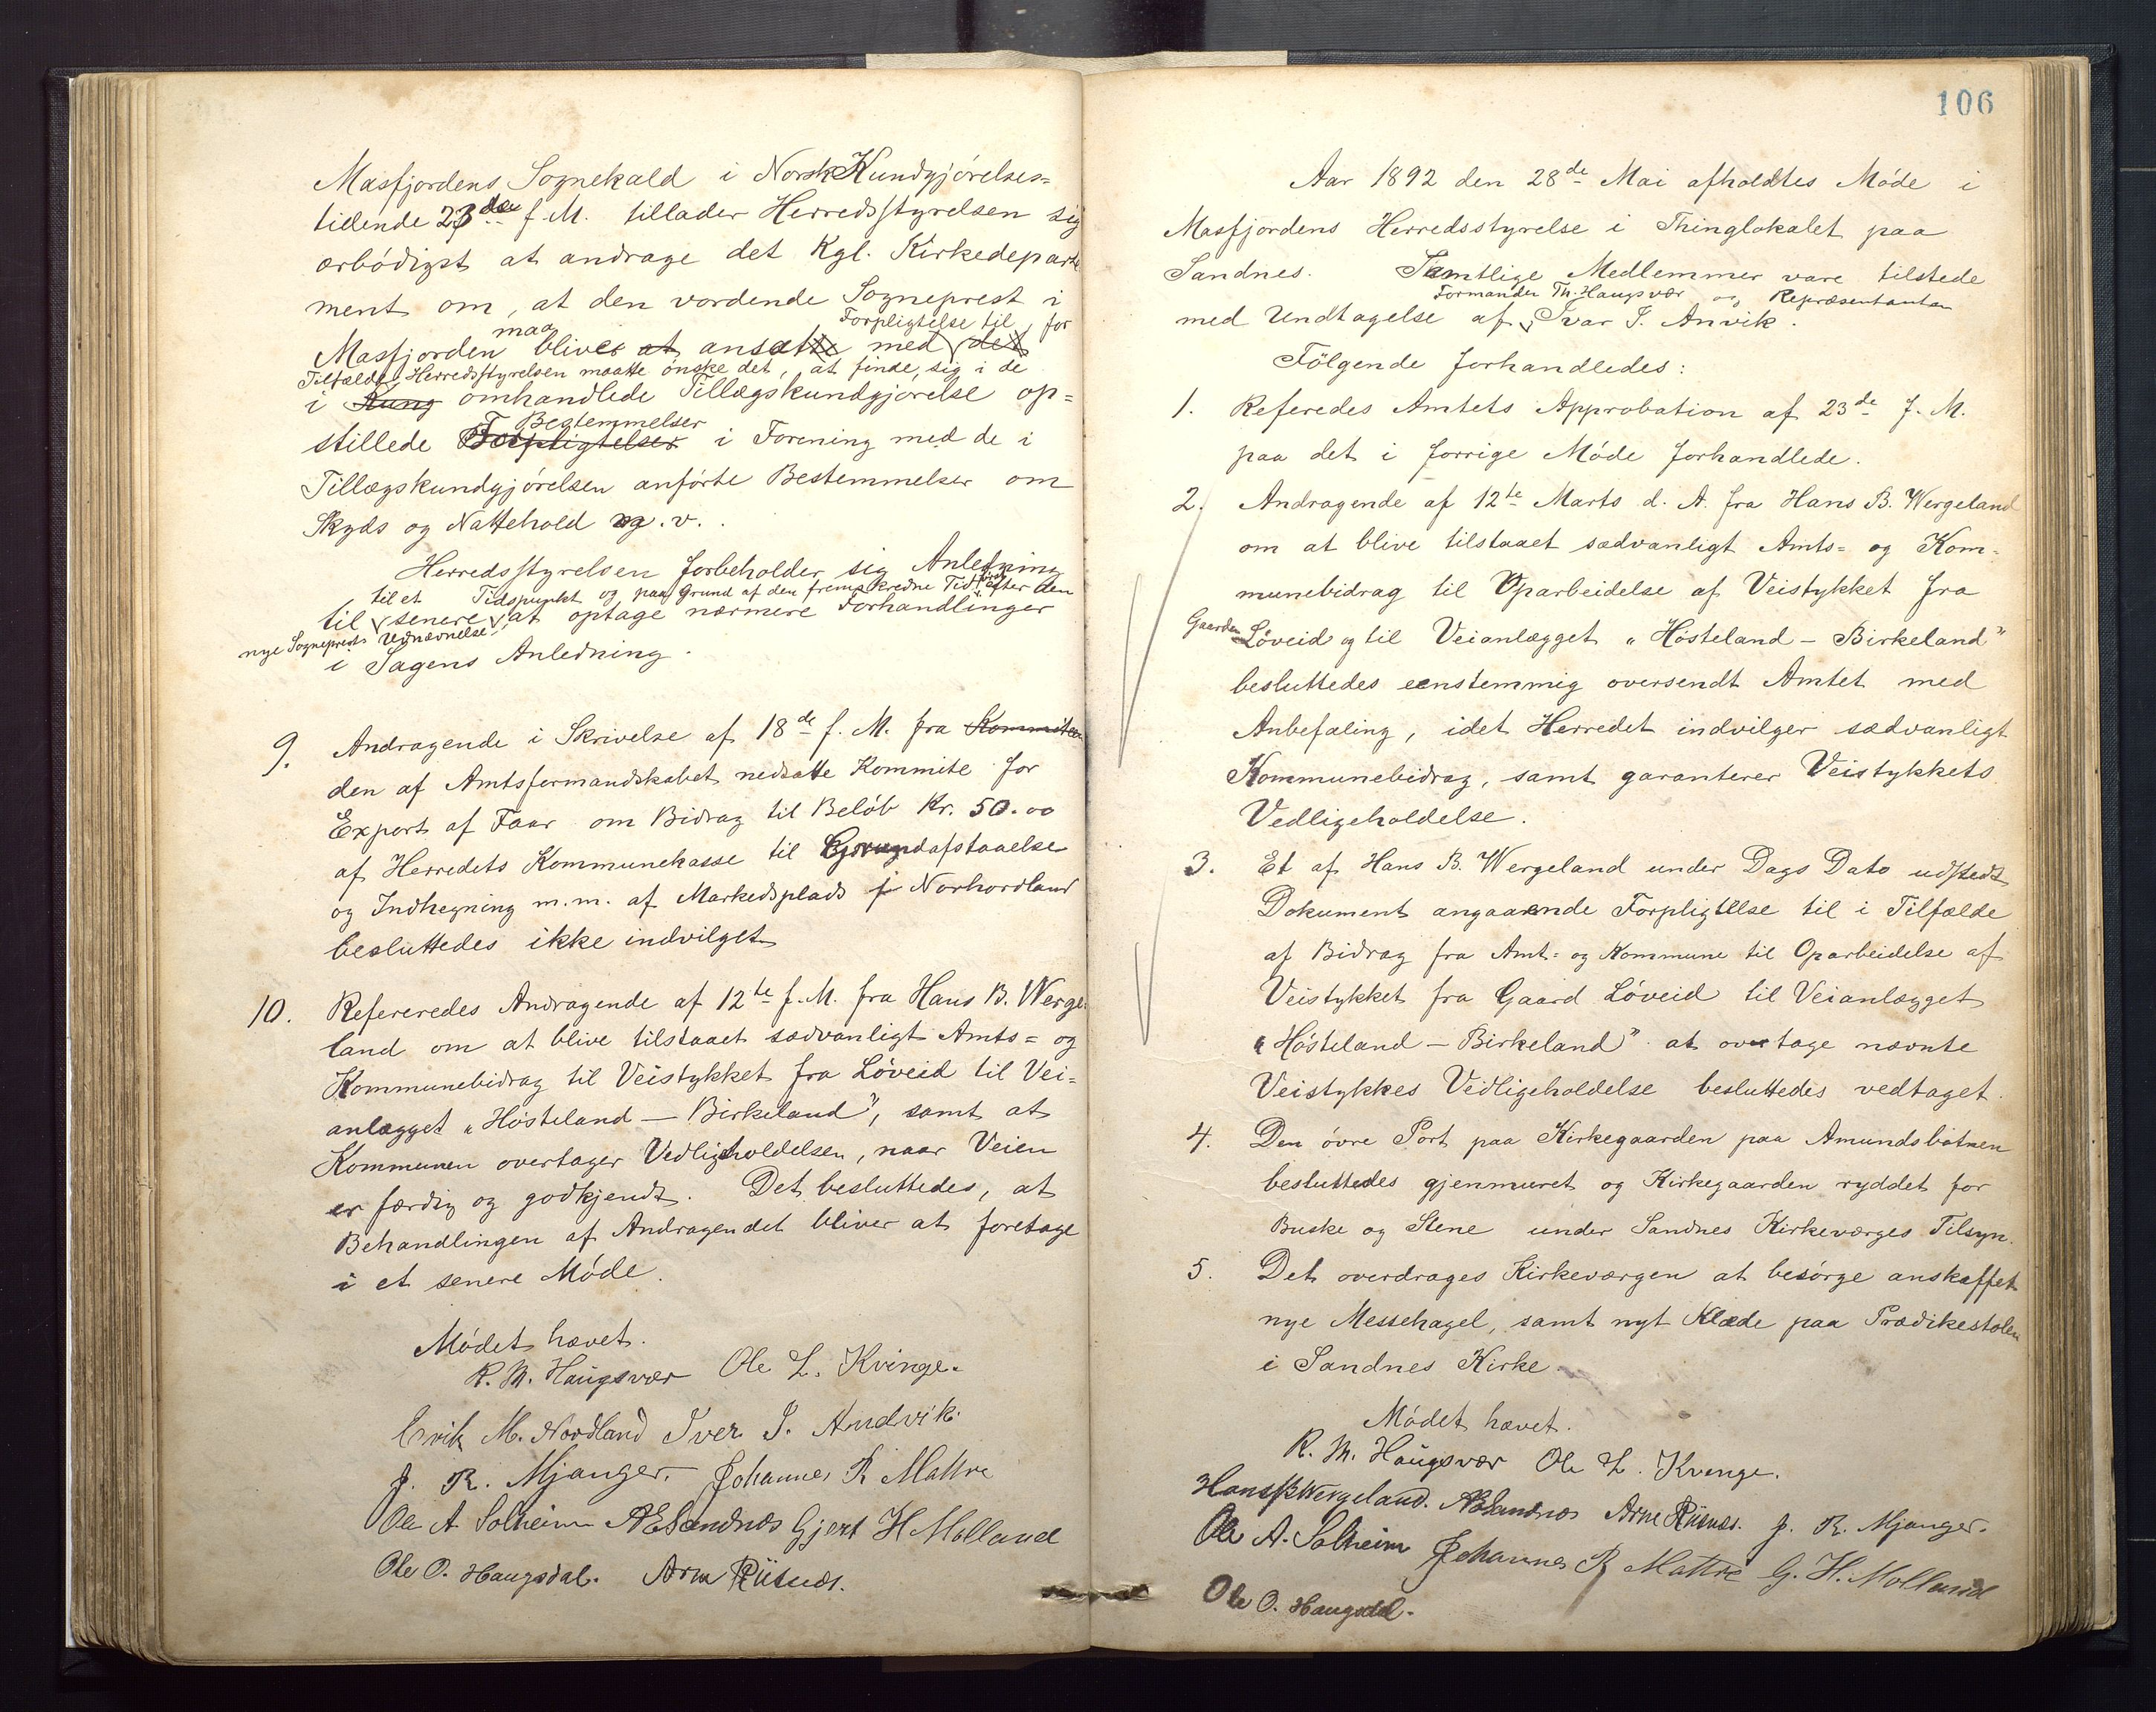 Masfjordens Sognekald i Norsk Kundgjørelses=
tidende 23de f. M. tillader Herredsstyrelsen sig
ærbødigst at andrage det Kgl. Kirkedeparte
ment om, at den vordende Sogneprest i
maa Forpligtelse til, for
Masfjorden bliver at ansætte med det
Tilfælde Herredsstyrelsen maatte ønske det, at finde sig i de
i Kung omhandlede Tillægskundgjørelse op=
Bestemmelser
stillede Forpligtelser i Forening med de i
Tillægskundgjørelsen anførte Bestemmelser om
Skyds og Nattehold og. v.
Herredsstyrelsen forbeholder sig Anledning
til et Tidspunkt og paa Grund af den fremskredne Tid først efter den
til senere at optage nærmere Forhandlinger
nye Sogneprests Udnævnelse
i Sagens Anledning.
9. Andragende i Skrivelse af 18de f. M. fra Kommiteen
den af Amtsformandskabet nedsatte Kommite for
Export af Faar om Bidrag til Beløb Kr. 50.00
af Herredets Kommunekasse til Grundafstaaelse
og Indhegning m.m. af Markedsplads i Norhordland
besluttedes ikke indvilget
10. Refereredes Andragende af 12te f. M. fra Hans B. Werge
land om at blive tilstaaet sædvanligt Amts= og
Kommunebidrag til Veistykket fra Løveid til Vei=
anlægget "Høsteland — Birkeland", samt at
Kommunen overtager Vedligeholdelsen, naar Veien
er færdig og godkjendt. Det besluttedes, at
Behandlingen af Andragendet bliver at foretage
i et senere Møde.
Mødet hævet.
R. M. Haugsvær Ole L. Kvinge.
Erik M. Nordland Iver I. Andvik.
J. R. Mjanger. Johannes R Mattre
Ole A Solheim AESandnæs Gjert H Molland
Ole O. Haugsdal. Arne Riisnæs.
106
Aar 1892 den 28de Mai afholdtes Møde i
Masfjordens Herredsstyrelse i Thinglokalet paa
Sandnes. Samtlige Medlemmer vare tilstede
Formanden Th. Haugsvær og Repræsentanten
med Undtagelse af Ivar I. Anvik.
Følgende forhandledes:
1. Referedes Amtets Approbation af 23de f. M.
paa det i forrige Møde forhandlede.
2. Andragende af 12te Marts d. A. fra Hans B. Wergeland
om at blive tilstaaet sædvanligt Amts= og Kom=
munebidrag til Oparbeidelse af Veistykket fra
Gaarden Løveid og til Veianlægget "Høsteland — Birkeland"
besluttedes eenstemmig oversendt Amtet med
Anbefaling, idet Herredet indvilger sædvanligt
Kommunebidrag, samt garanterer Veistykkets
Vedligeholdelse.
3. Et af Hans B. Wergeland under Dags Dato udstedt
Dokument angaaende Forpligtelse til i Tilfælde
af Bidrag fra Amt= og Kommune til Oparbeidelse af
Veistykket fra Gaard Løveid til Veianlægget
"Høsteland — Birkeland" at overtage nævnte
Veistykkes Vedligeholdelse besluttedes vedtaget.
4. Den øvre Port paa Kirkegaarden paa Amundsbotnen
besluttedes gjenmuret og Kirkegaarden ryddet for
Buske og Stene under Sandnes Kirkeværges Tilsyn.
5. Det overdrages Kirkeværgen at besørge anskaffet
nye Messehagel, samt nyt Klæde paa Prædikestolen
i Sandnes Kirke.
Mødet hævet.
R. M. Haugsvær Ole L. Kvinge.
Hans B Wergeland. AESandnæs Arne Riisnæs. J. R. Mjanger.
Ole A. Solheim Johannes R Mattre G. H. Molland
Ole O. Haugsdal.